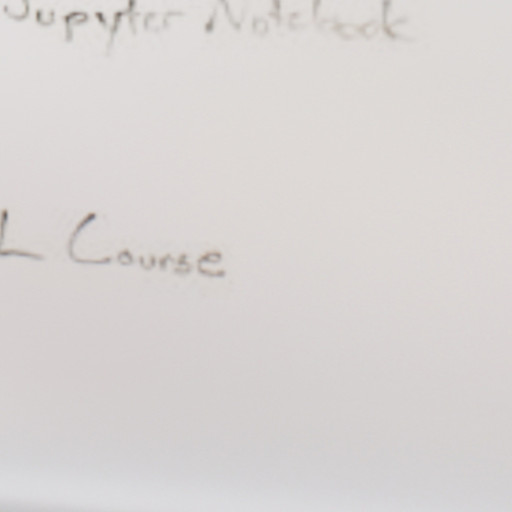 Jupyter Notebook
L Course